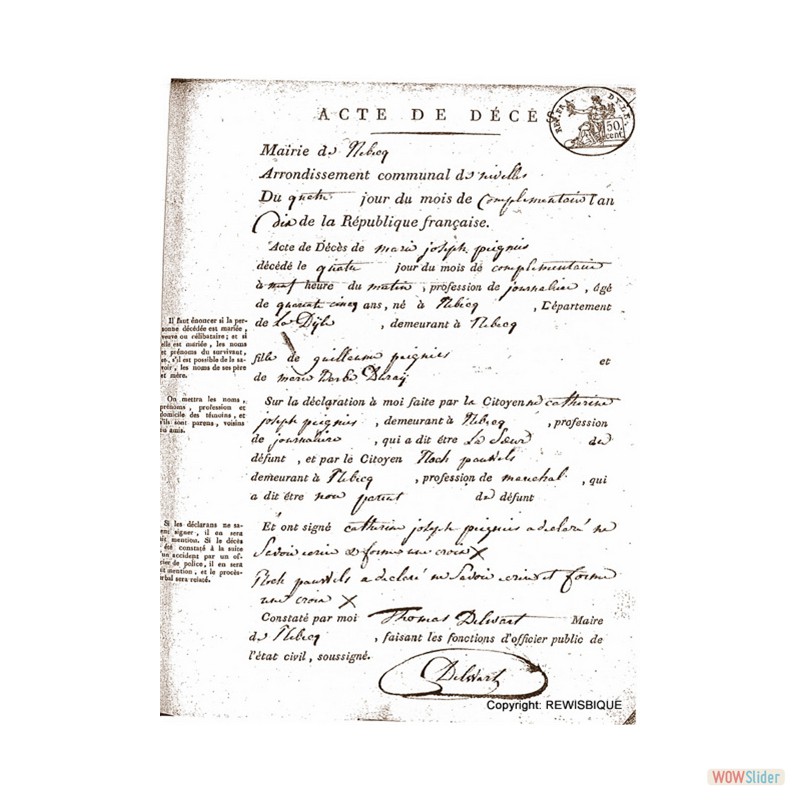 ACTE DE DÉCÈS
REP. FRA. DYLE.
50 cent.
Mairie de Rebecq
Arrondissement communal de nivelles
Du quatre jour du mois de Complementaire l'an
Dix de la République française.
Acte de Décès de marie joseph peignies
décédé le quatre jour du mois de complementaire
à neuf heure du matin, profession de journaliere, âgé
de quarante cinq ans, né à Rebecq, Département
de La Dÿle, demeurant à Rebecq
fille de guilleaume peignies et
de marie
Sur la déclaration à moi faite par le Citoyenne catherine
joseph peignies, demeurant à Rebecq, profession
de journaliere, qui a dit être La Sœur du
défunt, et par le Citoyen Roch pauwels
demeurant à Rebecq, profession de marechal, qui
a dit être non parent du défunt
Et ont signé catherine joseph peignies a declaré ne
Savoir ecrire & forme une croix X
Roch pauwels a declaré ne Savoir ecrire et forme
une croix X
Constaté par moi Thomas Delwart Maire
de Rebecq, faisant les fonctions d'officier public de
l'état civil, soussigné.
Delwart
Il faut énoncer si la per-
sonne décédée est mariée,
veuve ou célibataire; et si
elle est mariée, les noms
et prénoms du survivant,
et, s'il est possible de le sa-
voir, les noms de ses père
et mère.
On mettra les noms,
prénoms, profession et
domicile des témoins, et
s'ils sont parens, voisins
ou amis.
Si les déclarans ne sa-
vent signer, il en sera
fait mention. Si le décès
a été constaté à la suite
d'un accident par un of-
ficier de police, il en sera
fait mention, et le procès-
verbal sera relaté.
Copyright: REWISBIQUE
WOWSlider